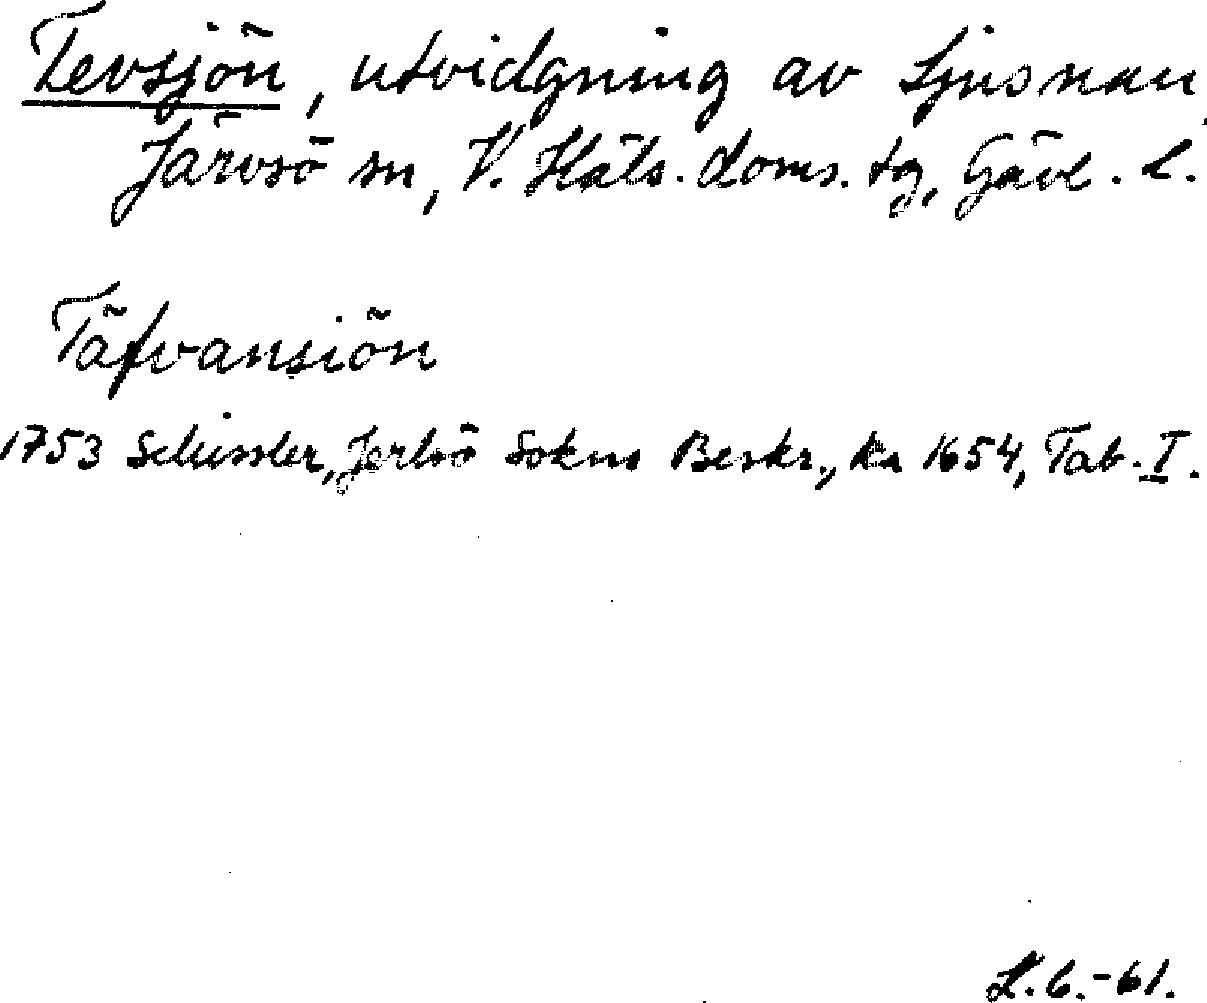 Tevsjön, utvidgning av Ljusnan
Järvsö sn, V. Häls. doms. tg, Gävl. l.
Täfvansiön
1753 Schissler, Jerlsö Sokns Beskr., Ka 1654, Tab. I.
L. 6.-61.